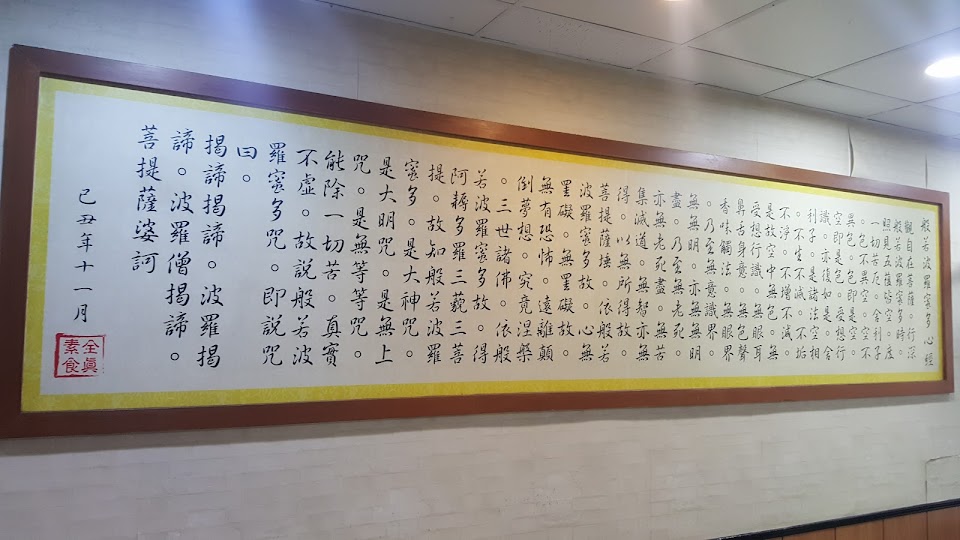 般若波羅蜜多心經
觀自在菩薩。行深
般若波羅蜜多時。
照見五蘊皆空。度
一切苦厄。舍利子
。色不異空。空不
異色。色即是空。
空即是色。受想行
識。亦復如是。舍
利子。是諸法空相
。不生不滅。不垢
不淨。不增不減。
是故空中無色。無
受想行識。無眼耳
鼻舌身意。無色聲
香味觸法。無眼界
。乃至無意識界。
無無明。亦無無明
盡。乃至無老死。
亦無老死盡。無苦
集滅道。無智亦無
得。以無所得故。
菩提薩埵。依般若
波羅蜜多故。心無
罣礙。無罣礙故。
無有恐怖。遠離顛
倒夢想。究竟涅槃
。三世諸佛。依般
若波羅蜜多故。得
阿耨多羅三藐三菩
提。故知般若波羅
蜜多。是大神咒。
是大明咒。是無上
咒。是無等等咒。
能除一切苦。真實
不虛。故說般若波
羅蜜多咒。即說咒
曰。
揭諦揭諦。波羅揭
諦。波羅僧揭諦。
菩提薩婆訶
己丑年十一月
全真
素食